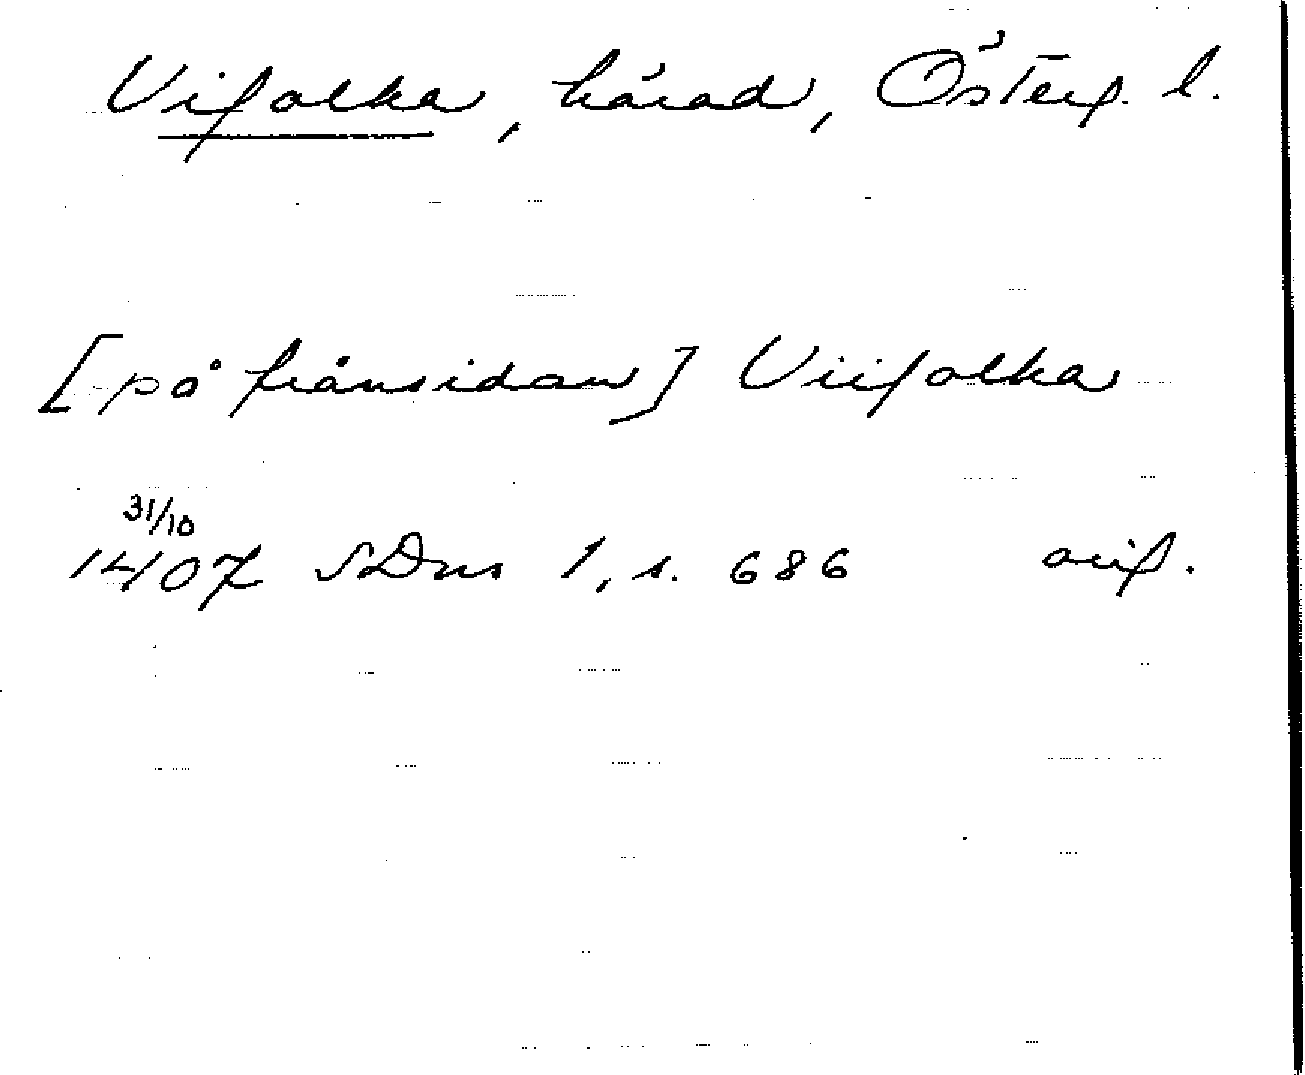 Vifolka, härad, Österg. l.
[på frånsidan] Viifolka
31/10
1407 SDns 1, s. 686 orig.